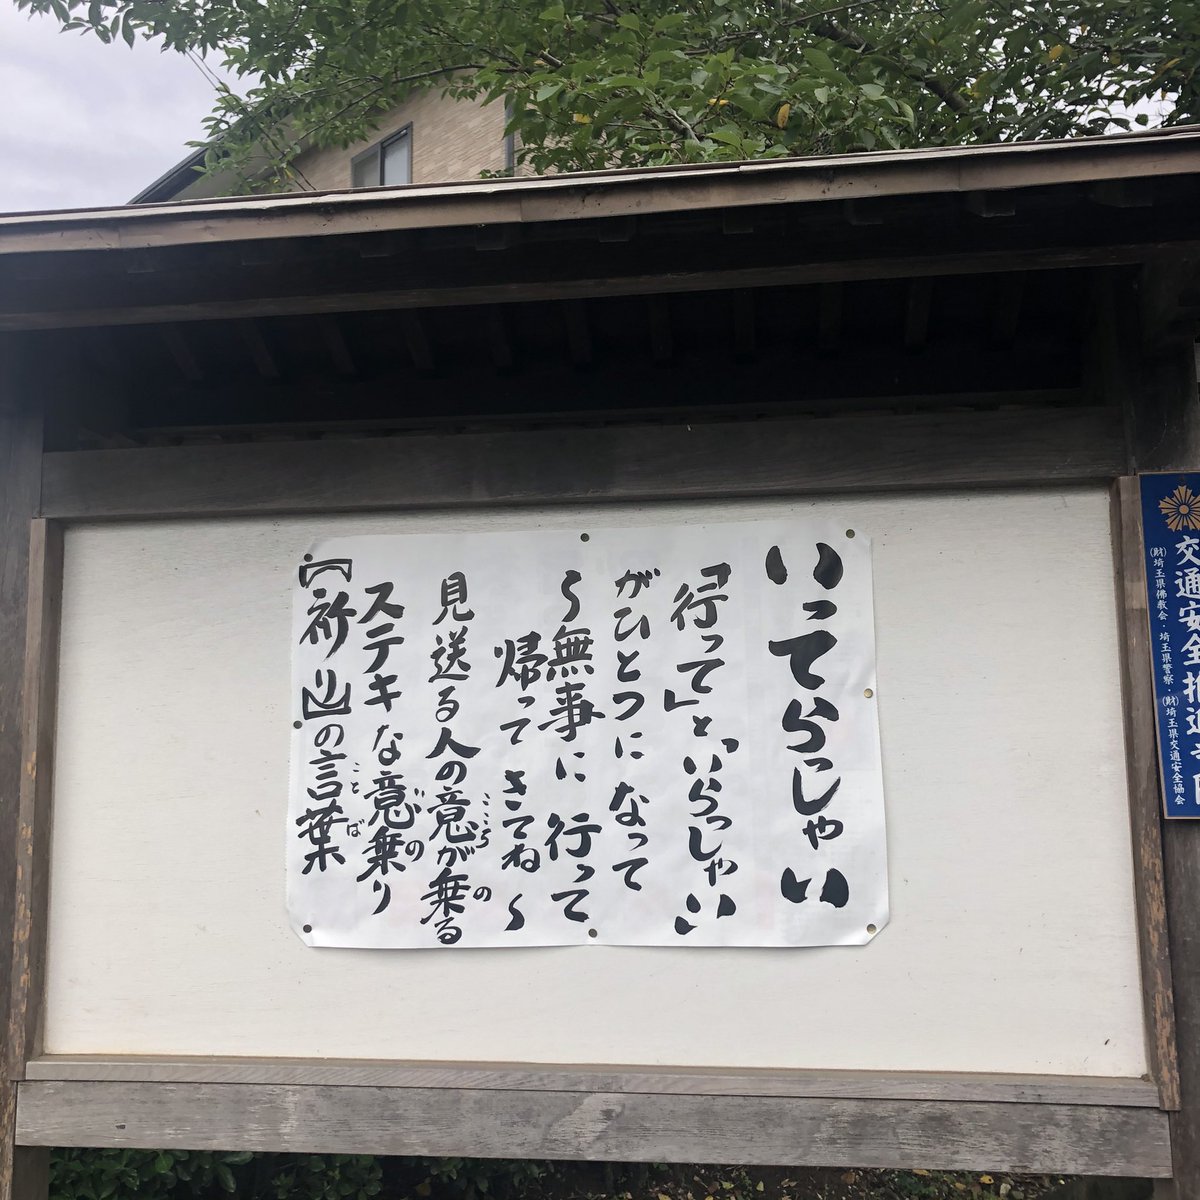 いってらしゃい
「行って」と、「いらっしゃい」
がひとつになって
〜無事に行って
帰ってきてね〜
見送る人の意が乗る
こころ の
ステキな意乗り
いの
【祈り】の言葉
ことば
交通安全推進
(財)埼玉県佛教会・埼玉県警察・(財)埼玉県交通安全協会